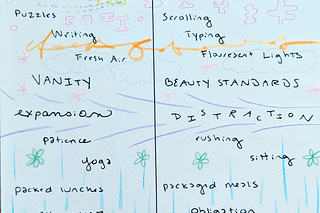 Puzzles
Scrolling
Writing
Typing
Fresh Air
Fluorescent Lights
VANITY
BEAUTY STANDARDS
expansion
DISTRACTION
patience
rushing
yoga
sitting
packed lunches
packaged meals
obligation